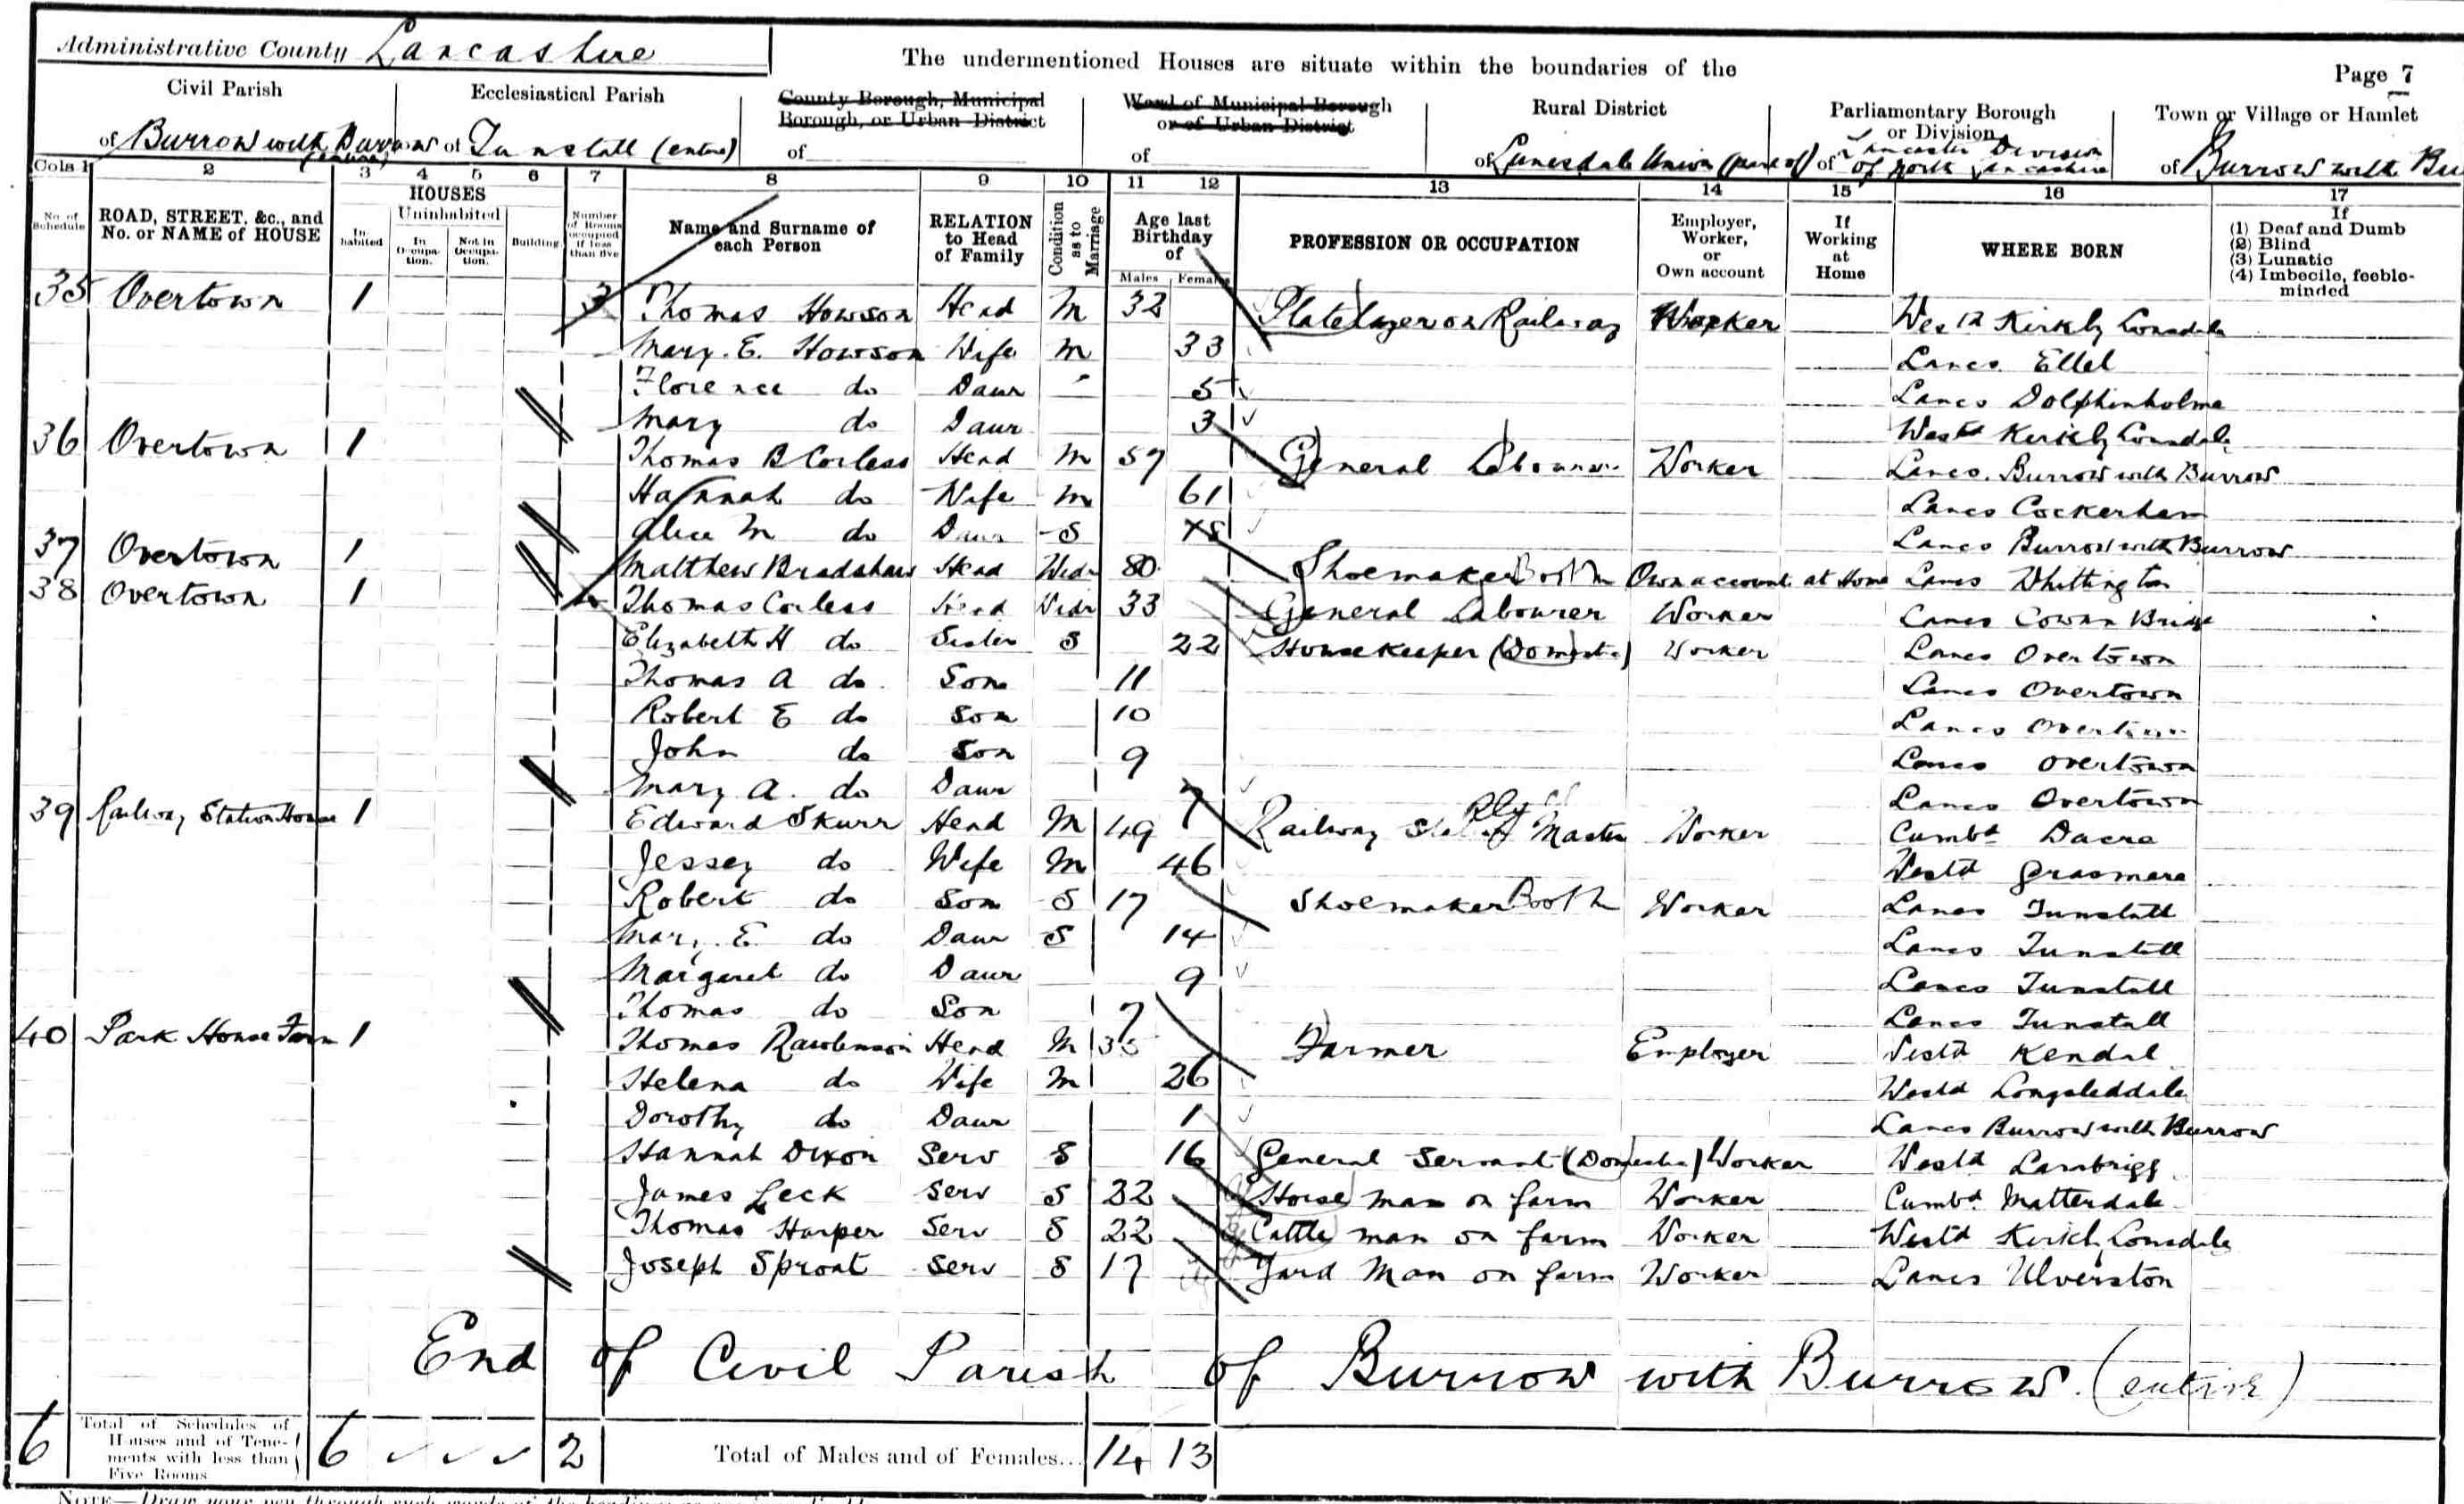 Administrative County Lancashire
The undermentioned Houses are situate within the boundaries of the
Page 7
Civil Parish
of Burrow with Burrow (entire)
Ecclesiastical Parish
of Tunstall (entire)
County Borough, Municipal Borough, or Urban District
of
Ward of Municipal Borough or of Urban District
of
Rural District
of Lunesdale Union (part of)
Parliamentary Borough or Division
of Lancaster Division of North Lancashire
Town or Village or Hamlet
of Burrow with Bu
Cols 1 2 3 4 5 6 7 8 9 10 11 12 13 14 15 16 17
No. of Schedule
ROAD, STREET, &c., and No. or NAME of HOUSE
HOUSES
Inhabited
Uninhabited
In Occupation.
Not in Occupation.
Building
Number of Rooms occupied if less than five
Name and Surname of each Person
RELATION to Head of Family
Condition as to Marriage
Age last Birthday of
Males Females
PROFESSION OR OCCUPATION
Employer, Worker, or Own account
If Working at Home
WHERE BORN
If
(1) Deaf and Dumb
(2) Blind
(3) Lunatic
(4) Imbecile, feeble-minded
35 Overtown 1 3 Thomas Howson Head M 32 Platelayer on Railway Worker Westd Kirkby Lonsdale
Mary. E. Howson Wife M 33 Lancs. Ellel
Florence do Daur - 5 Lancs Dolphinholme
Mary do Daur 3 Westd Kirkby Lonsdale
36 Overtown 1 Thomas B Corless Head M 57 General Labourer Worker Lancs. Burrow with Burrow
Hannah do Wife M 61 Lancs Cockerham
Alice M do Daur S 18 Lancs Burrow with Burrow
37 Overtown 1 Matthew Bradshaw Head Widr 80 Shoemaker Booth Own account at Home Lancs Whittington
38 Overtown 1 4 Thomas Corless Head Widr 33 General Labourer Worker Lancs Cowan Bridge
Elizabeth H do Sister S 22 Housekeeper (Domestic) Worker Lancs Overtown
Thomas A do Son 11 Lancs Overtown
Robert E do Son 10 Lancs Overtown
John do Son 9 Lancs Overtown
Mary A. do Daur 7 Lancs Overtown
39 Railway Station House 1 Edward Skurr Head M 49 Railway Station Rly Master Worker Cumbd Dacre
Jessey do Wife M 46 Westd Grasmere
Robert do Son S 17 Shoemaker Booth Worker Lancs Tunstall
Mary. E. do Daur S 14 Lancs Tunstall
Margaret do Daur 9 Lancs Tunstall
Thomas do Son 7 Lancs Tunstall
40 Park House Farm 1 Thomas Rawlinson Head M 35 Farmer Employer Westd Kendal
Helena do Wife M 26 Westd Longsleddale
Dorothy do Daur 1 Lancs Burrow with Burrow
Hannah Dixon Serv S 16 General Servant (Domestic) Worker Westd Lambrigg
James Leck Serv S 22 Horse man on farm Worker Cumbd Matterdale
Thomas Harper Serv S 22 Cattle man on farm Worker Westd Kirkby Lonsdale
Joseph Sproat Serv S 17 Yard Man on farm Worker Lancs Ulverston
End of Civil Parish of Burrow with Burrow. (entire)
6 Total of Schedules of Houses and of Tenements with less than Five Rooms 6 2 Total of Males and of Females... 14 13